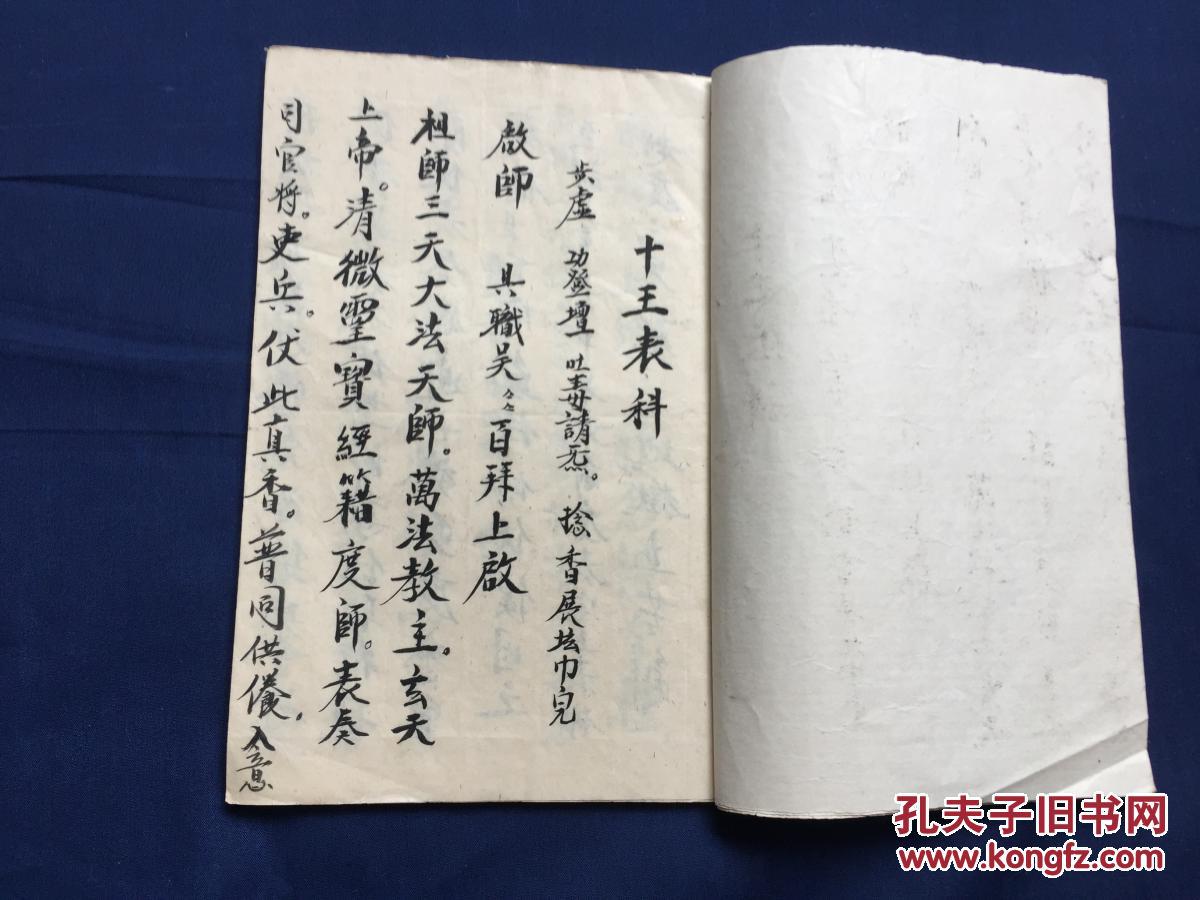 十王表科
步虛 功登壇 吐毒請炁。捻香展坛巾完
啟師 具職吴〻百拜上啟
祖師三天大法天師。萬法教主。玄天
上帝。清微靈寶經籍度師。表奏
司官将。吏兵。伏此真香。普同供養。入意
孔夫子旧书网
www.kongfz.com